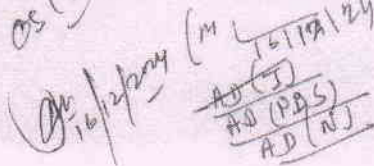 OS (
16/12/2024
(M
16/12/24
AD (J)
AD (PBS)
AD (NJ